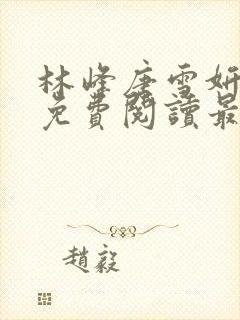 林峰唐雪妍
免費閱讀最
趙毅